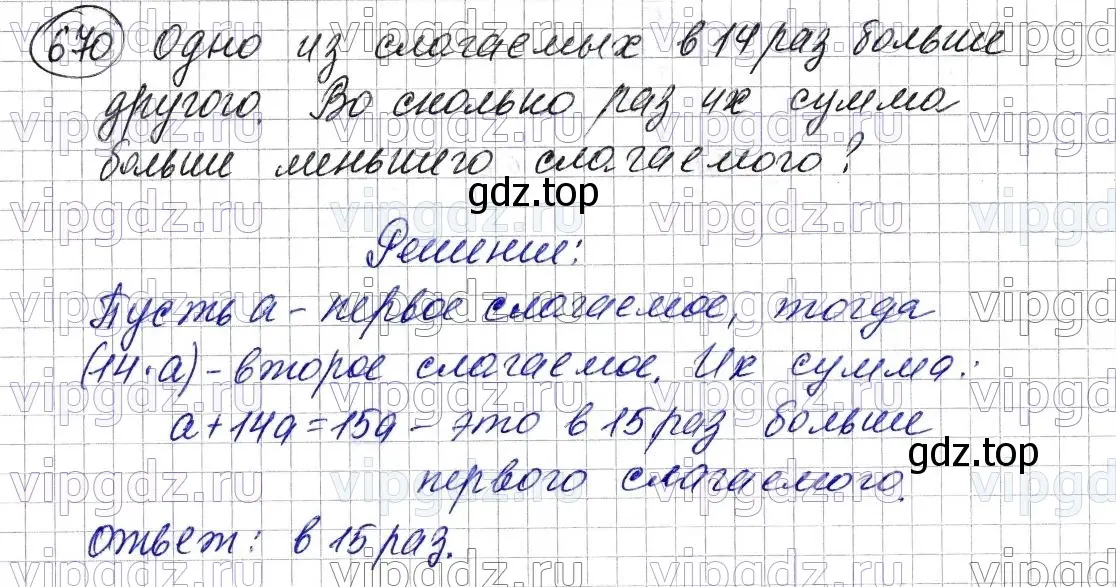 670 Одно из слагаемых в 14 раз больше
другого. Во сколько раз их сумма
больше меньшего слагаемого?
gdz.top
Решение:
Пусть a - первое слагаемое, тогда
(14·a) - второе слагаемое. Их сумма:
a+14a=15a - это в 15 раз больше
gdz.top
первого слагаемого.
Ответ: в 15 раз.